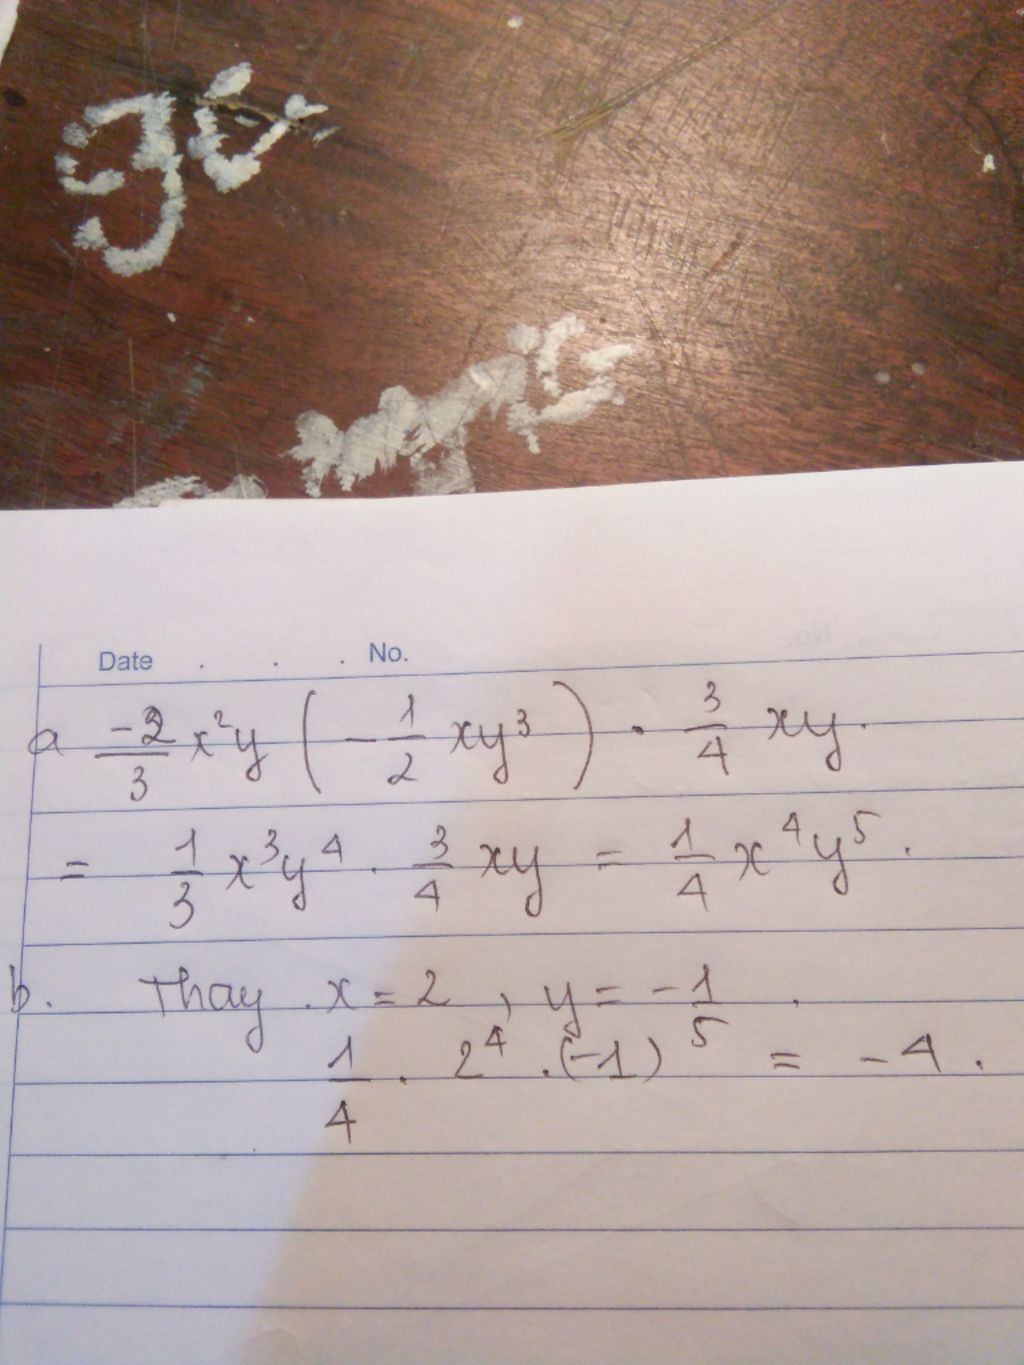 gì
Date . . . No.
a -2/3 x²y (-1/2 xy³) . 3/4 xy.
= 1/3 x³y⁴ . 3/4 xy = 1/4 x⁴y⁵.
b. Thay x = 2, y = -1.
1/4 . 2⁴ .(-1)⁵ = -4.